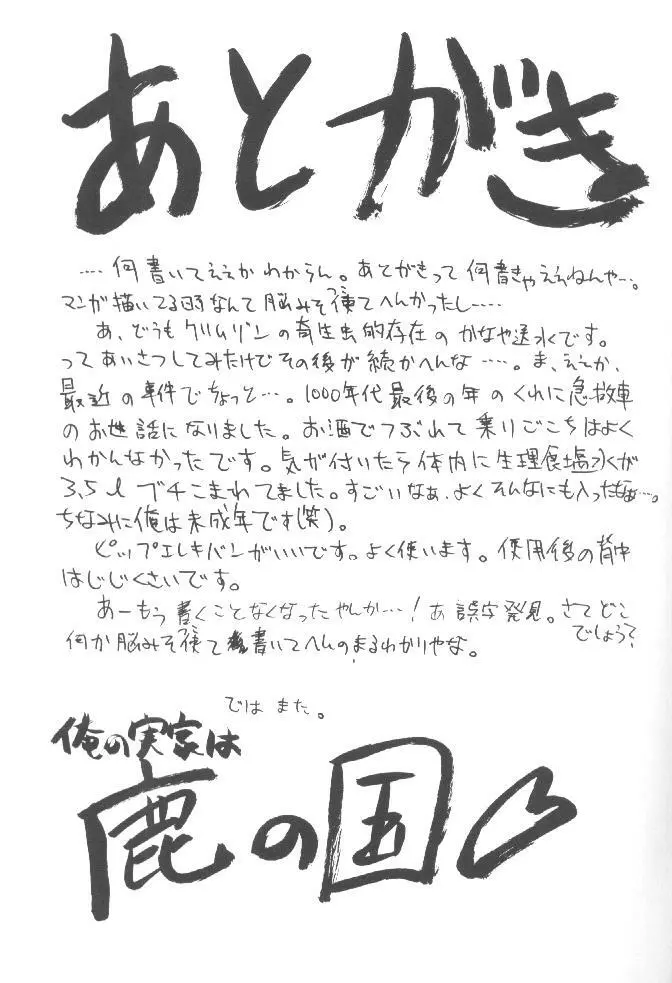 あとがき
‥‥何書いてええか わからん。あとがきって何書きゃええねんや‥。
マンガ描いてる時なんて脳みそ使てへんかったし‥‥
あ、どうもクリムゾンの寄生虫的存在の かなや送水です。
ってあいさつしてみたけどその後が続かへんな‥‥。ま、ええか、
最近の事件でちょっと‥。1000年代最後の年のくれに急救車
のお世話になりました。お酒でつぶれて乗りごこちはよく
わかんなかったです。気が付いたら体内に生理食塩水が
3,5ℓ ブチこまれてました。すごいなぁ、よくそんなにも入ったなぁ‥。
ちなみに俺は未成年です(笑)。
ピップエレキバンがいいです。よく使います。使用後の背中
はじじくさいです。
あーもう書くことなくなったやんか‥！あ誤字発見。さてどこ
でしょう？
何か脳みそ使て書いてへんのまるわかりやな。
では また。
俺の実家は
鹿の国